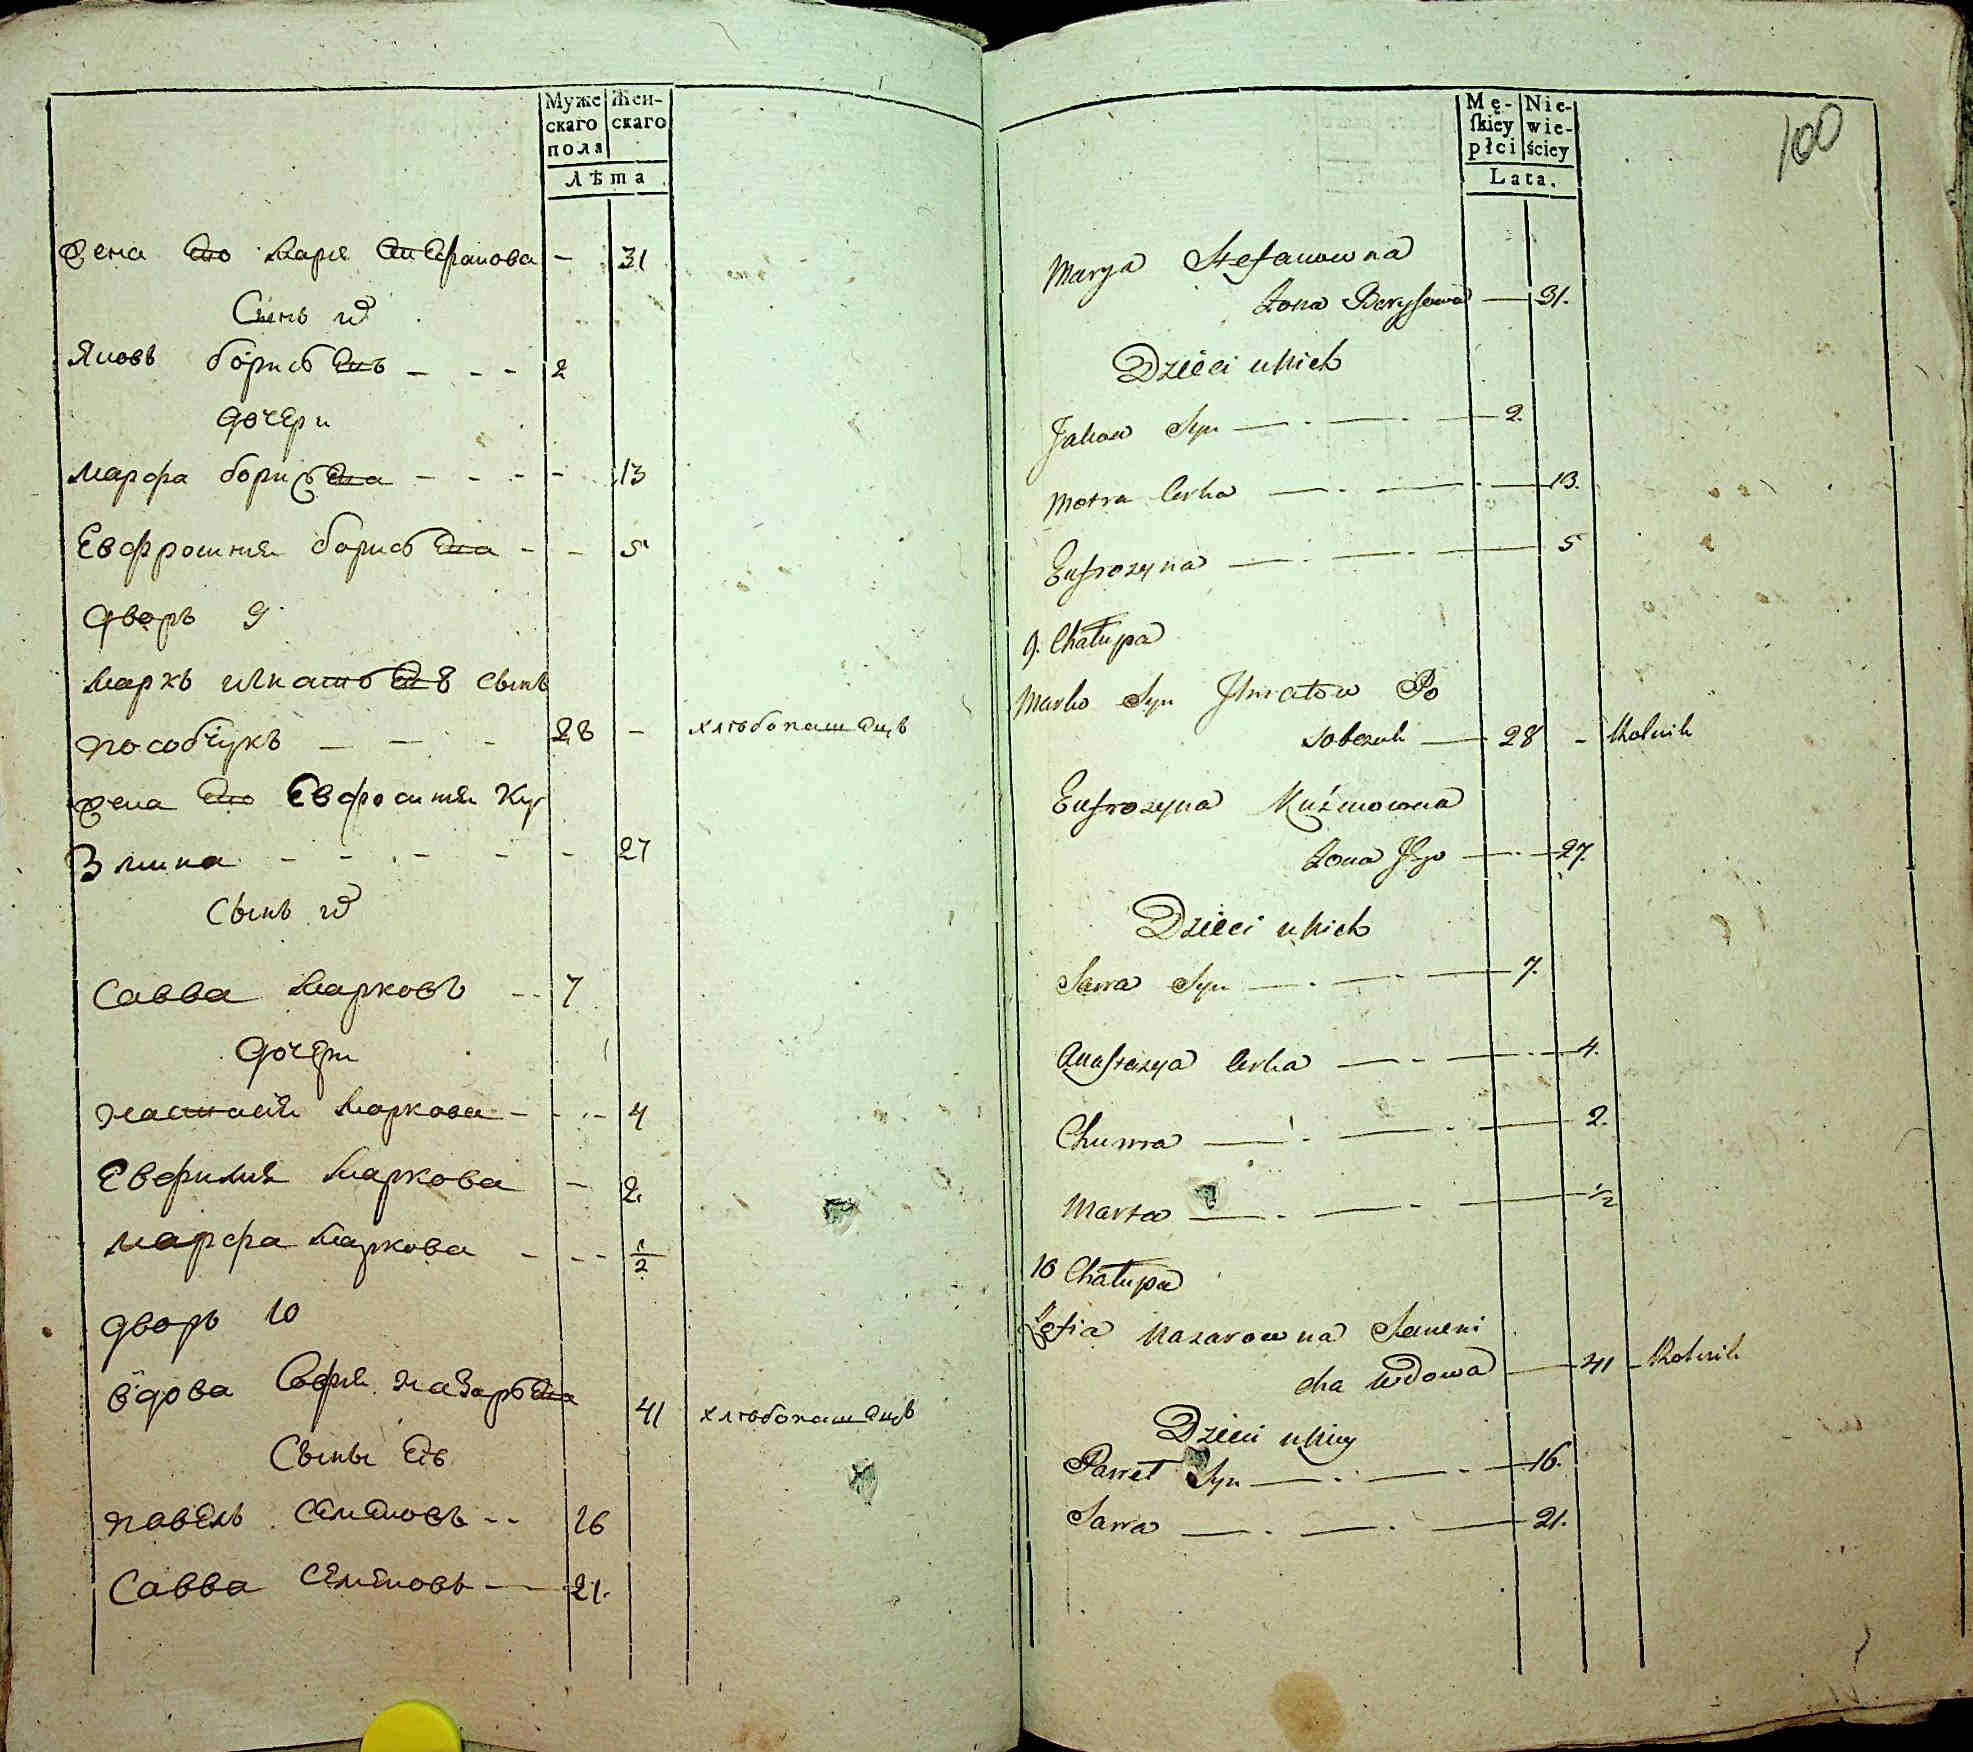 Муже
скаго
пола
Жен-
скаго
лѣта
Жена его Марія Стефанова - 31
Сынъ их
Яковъ борисовъ - - - 2
дочери
Марфа борисова - - - - 13
Евфросинія борисова - - 5
дворъ 9
Маркъ игнатовъ сынъ
пособчукъ - - - 28 - хлѣбопашецъ
Жена его Евфросинія Ку
змина - - - - - 27
Сынъ их
Савва Марковъ - - 7
дочери
Настасія Маркова - - - - 4
Евфимия Маркова - 2.
Марфа Маркова - - - 1/2
дворъ 10
вдова Софія Назарова 41 хлѣбопашецъ
Сыны ея
Павелъ Семеновъ - - 16
Савва Семеновъ - - 21.
100
Mę-
ſkiey
płci
Nie-
wie-
ściey
Lata.
Marya Stefanowna
Zona Borysowa — 31.
Dzieci u Nich
Jakow Syn — . — . — 2
Motra Corka — . — . — 13.
Eufrozyna — . — . — 5
9. Chałupa
Marko Syn Jhnatow Po
sobczuk — 28 - Rolnik
Eufrozyna Kuźmowna
Zona Jego — . — 27.
Dzieci u Nich
Sawa Syn — . — . — 7.
Anastazya Corka — . — . — 4.
Chwma — . — . — 2.
Marta — . — . — 1/2
10 Chałupa
Zofia Nazarowna Semeni
cha Wdowa — 41 - Rolnik
Dzieci u Niey
Paweł Syn — . — . — 16.
Sawa — . — . — 21.